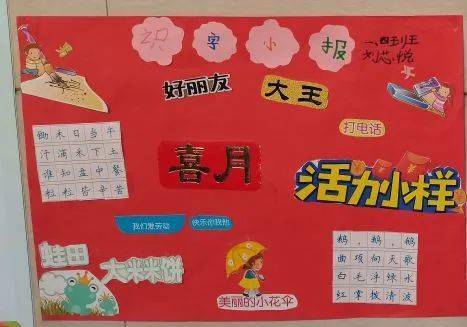 识字小报
刘芯悦
好丽友
大王
打电话
锄禾日当午
汗滴禾下土
谁知盘中餐
粒粒皆辛苦
喜月
活力小样
我们爱劳动
快乐你我他
蛙田
大米米饼
美丽的小花伞
鹅,鹅,鹅
曲项向天歌
白毛浮绿水
红掌拨清波